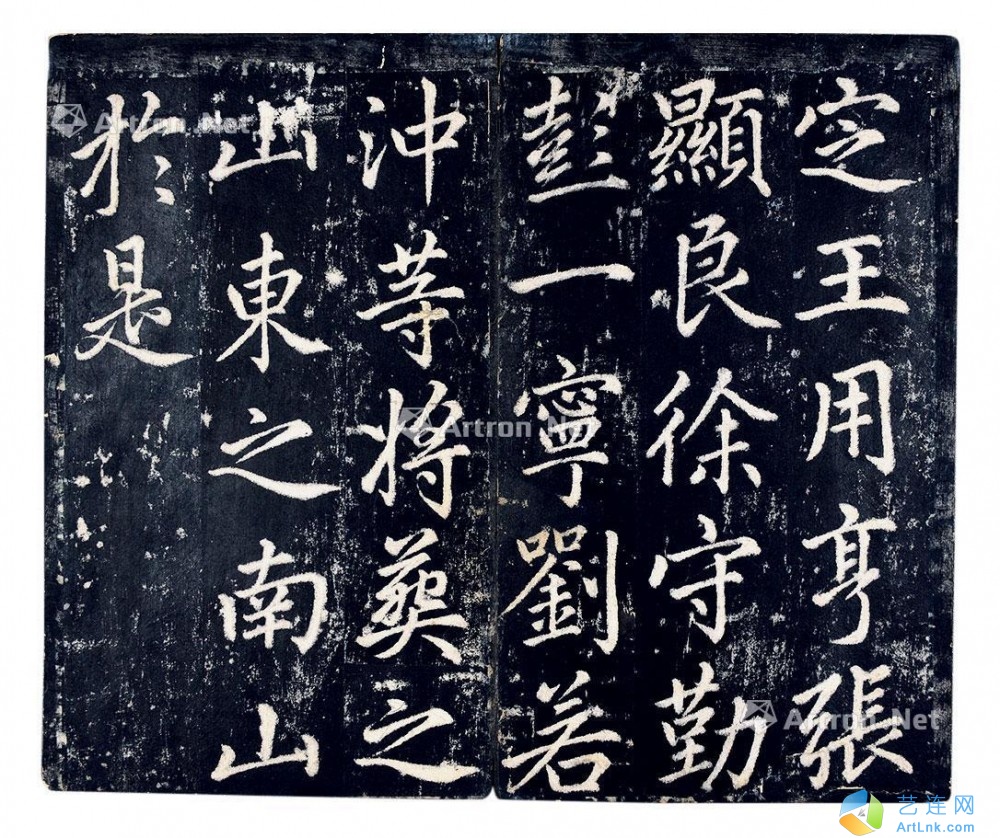 定王用亨張
顯良徐守勤
彭一寧劉若
冲等將葬之
山東之南山
於是
Artron.Net
Artron.Net
Artron.Net
艺连网
ArtLnk.com